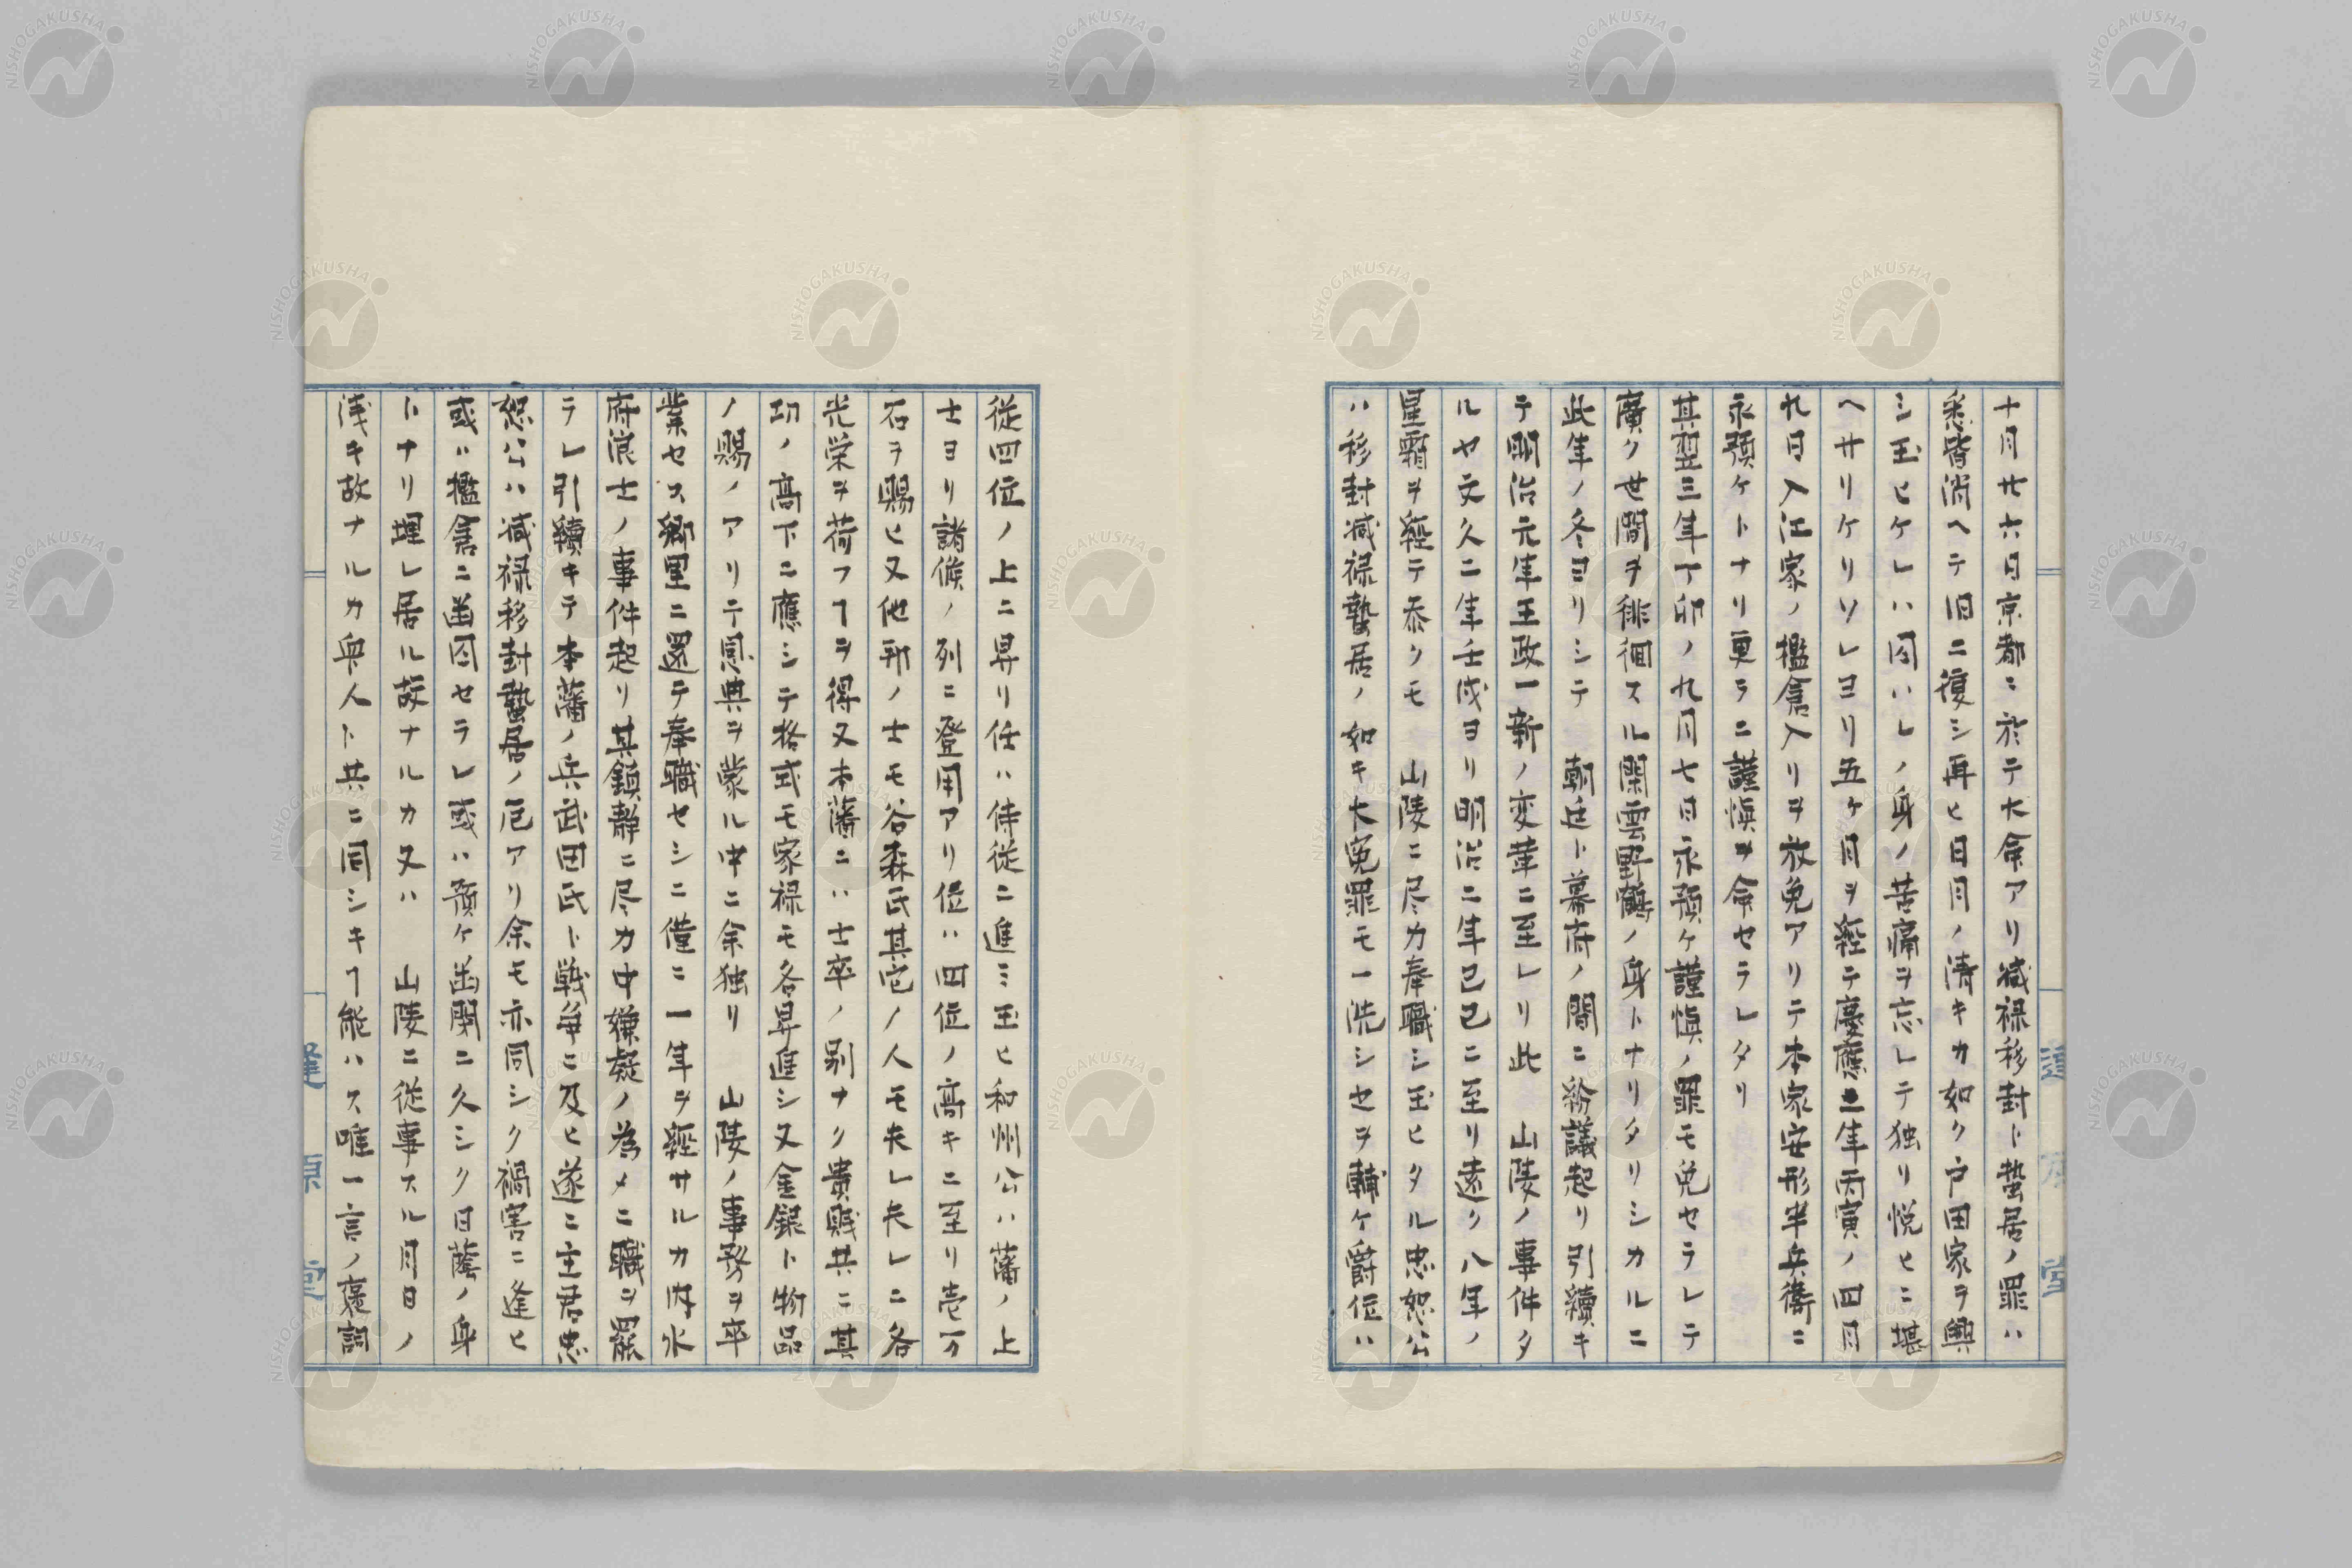 十月廿六日京都ニ於テ大命アリ減禄移封ト蟄居ノ罪ハ
悉皆消ヘテ旧ニ復シ再ヒ日月ノ清キカ如ク戸田家ヲ興
シ玉ヒケレハ囚ハレノ身ノ苦痛ヲ忘レテ独リ悦ヒニ堪
ヘサリケリソレヨリ五ケ月ヲ経テ慶應二年丙寅ノ四月
九日入江家ノ檻倉入リヲ放免アリテ本家安形半兵衛ニ
永預ケトナリ更ラニ謹慎ヲ命セラレタリ
其翌三年丁卯ノ九月七日永預ケ謹慎ノ罪モ免セラレテ
廣ク世間ヲ徘徊スル閑雲野鶴ノ身トナリタリシカルニ
此年ノ冬ヨリシテ 朝廷ト幕府ノ間ニ紛議起リ引續キ
テ明治元年王政一新ノ変革ニ至レリ此 山陵ノ事件タ
ルヤ文久二年壬戌ヨリ明治二年己巳ニ至リ遠ク八年ノ
星霜ヲ経テ忝クモ 山陵ニ尽力奉職シ玉ヒタル忠恕公
ハ移封減禄蟄居ノ如キ大冤罪モ一洗シセヲ輔ケ爵位ハ
従四位ノ上ニ昇リ任ハ侍従ニ進ミ玉ヒ和州公ハ藩ノ上
士ヨリ諸候ノ列ニ登用アリ位ハ四位ノ高キニ至リ壱万
石ヲ賜ヒ又他邦ノ士モ谷森氏其它ノ人モ夫レ夫レニ各
光栄ヲ荷フヿヲ得又本藩ニハ士卒ノ別ナク貴賎共ニ其
功ノ高下ニ應シテ格式モ家禄モ各昇進シ又金銀ト物品
ノ賜ノアリテ恩典ヲ蒙ル中ニ余独リ 山陵ノ事務ヲ卒
業セス郷里ニ還テ奉職セシニ僅ニ一年ヲ経サルカ内水
府浪士ノ事件起リ其鎮静ニ尽力中嫌疑ノ為メニ職ヲ罷
ラレ引續キテ本藩ノ兵武田氏ト戦争ニ及ヒ遂ニ主君忠
恕公ハ減禄移封蟄居ノ厄アリ余モ亦同シク禍害ニ逢ヒ
或ハ檻倉ニ幽囚セラレ或ハ預ケ幽閉ニ久シク日蔭ノ身
トナリ埋レ居ル故ナルカ又ハ 山陵ニ従事スル月日ノ
浅キ故ナルカ與人ト共ニ同シキヿ能ハス唯一言ノ褒詞
逢原堂